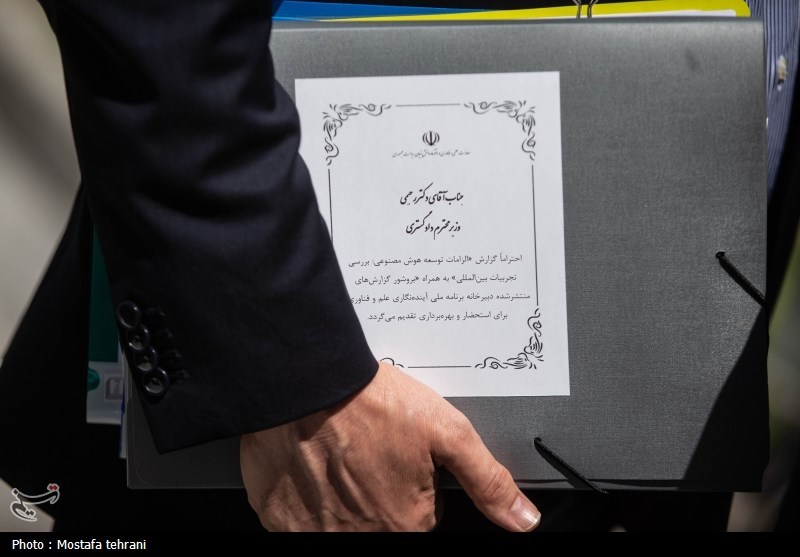 معاونت علمی، فناوری و اقتصاد دانش بنیان ریاست جمهوری
جناب آقای دکتر رحیمی
وزیر محترم دادگستری
احتراماً گزارش «الزامات توسعه هوش مصنوعی: بررسی
تجربیات بین‌المللی» به همراه «بروشور گزارش‌های
منتشرشده دبیرخانه برنامه ملی آینده‌نگاری علم و فناوری
برای استحضار و بهره‌برداری تقدیم می‌گردد.
تسنیم
Photo : Mostafa tehrani